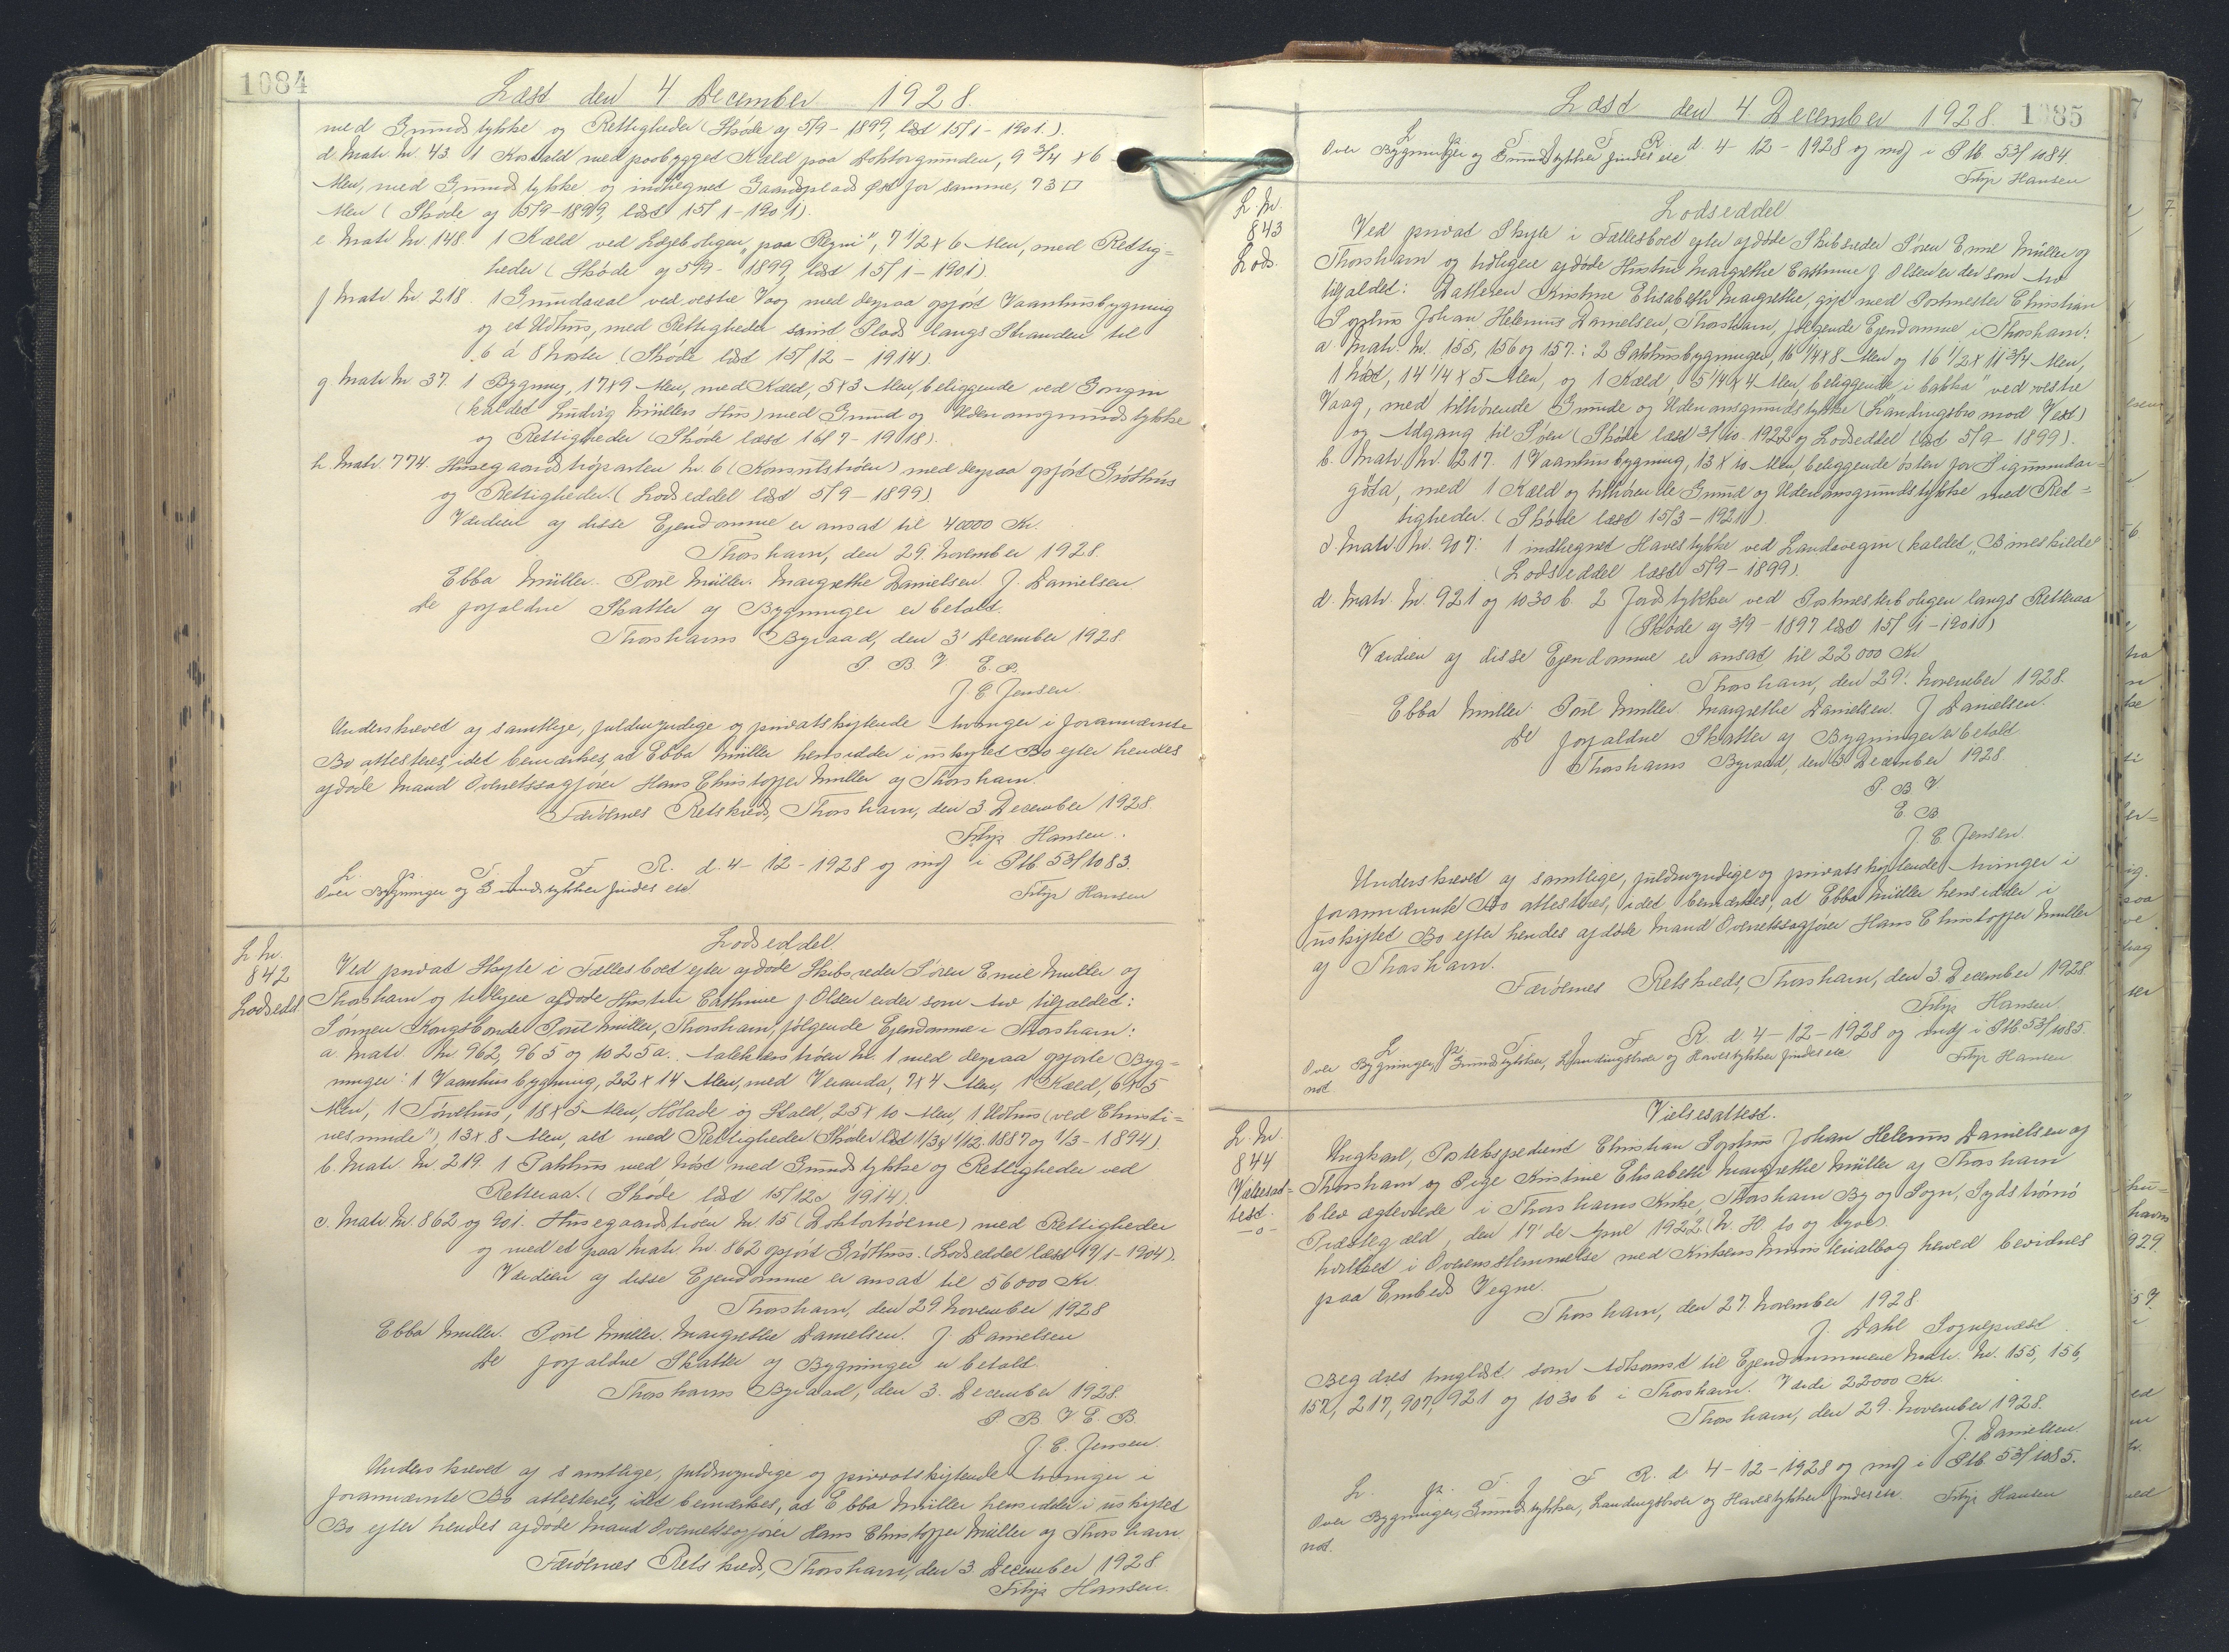 1084
Læst den 4 December 1928.
med Grundstykke og Rettigheder (Skøde af 5/9-1899, læst 15/1-1901.).
d. Matr. Nr. 43. 1 Kostald med paabygget Kæld paa Doktorgrunden, 9 3/4 x 6
Alen, med Grundstykke og indhegnet Gaardsplads Øst for samme, 73 □
Alen (Skøde af 5/9-1899, læst 15/1-1901).
e Matr. Nr. 148. 1 Kæld ved Lægeboligen "paa Reyni", 7 1/2 x 6 Alen, med Rettig=
heder (Skøde af 5/9-1899, læst 15/1-1901).
f Matr. Nr. 218. 1 Grundareal ved vestre Vaag med derpaa opført Vaanhusbygning
og et Udhus, med Rettigheder samt Plads langs Stranden til
6 á 8 Noster (Skøde læst 15/12-1914)
g Matr. Nr. 37. 1 Bygning, 17x9 Alen, med Kæld, 5x3 Alen, beliggende ved Gongin
(kaldet Ludvig Müllers Hus) med Grund og Udenomsgrundstykke
og Rettigheder (Skøde læst 16/7-1918).
h. Matr. 774. Husegaardstrøparten Nr. 6 (Konsulstrøen) med derpaa opført Gróthús
og Rettigheder. (Lodseddel læst 5/9-1899)
Værdien af disse Ejendomme er ansat til 40000 Kr.
Thorshavn, den 29. November 1928.
Ebba Müller. Poul Müller. Margrethe Danielsen. J. Danielsen
De forfaldne Skatter af Bygninger er betalt.
Thorshavns Byraad, den 3' December 1928
P. B. V. E. B.
J. E. Jensen.
Underskrevet af samtlige, fuldmyndige og privatskiftende Arvinger i forannævnte
Bo attesteres, idet bemærkes, at Ebba Müller hensidder i uskiftet Bo efter hendes
afdøde Mand Overretssagfører Hans Christopher Müller af Thorshavn.
Færøernes Retskreds, Thorshavn, den 3 December 1928
Filip Hansen.
L. p. T. J. F. R. d. 4-12-1928 og indf i Ptb 53/1083.
Over Bygninger og Grundstykker findes etc
Filip Hansen
L. Nr.
842
Lodsedd.
Lodseddel.
Ved privat Skifte i Fællesboet efter afdøde Skibsreder Søren Emil Müller og
Thorshavn og tidligere afdøde Hustru Cathrine f. Olsen er der som Arv tilfaldet:
Sønnen Kongsbonde Poul Müller, Thorshavn, følgende Ejendomme i Thorshavn:
a. Matr. Nr. 962, 965 og 1025a. Aalekærstrøen Nr. 1 med derpaa opførte Byg=
ninger: 1 Vaanhusbygning, 22x14 Alen, med Veranda, 7x4 Alen, 1 Kæld, 6x5
Alen, 1 Tórvhus, 18x5 Alen, Hølade og Stald, 25x10 Alen, 1 Udhus (ved Christi=
nesminde"), 13x8 Alen, alt med Rettigheder (Skøder læst 1/3 & 1/12 1887 og 1/3-1894)
b. Matr. Nr. 219. 1 Pakhus med Nóst med Grundstykke og Rettigheder ved
Retteraa. (Skøde læst 15/12 1914).
c. Matr. Nr. 862 og 901. Husegaardstrøen Nr. 15 (Doktortrøerne) med Rettigheder
og med et paa Matr. Nr. 862 opført Gróthus. (Lodseddel læst 19/1-1904).
Værdien af disse Ejendomme er ansat til 56000 Kr.
Thorshavn, den 29 November 1928
Ebba Müller. Poul Müller. Margrethe Danielsen. J. Danielsen
De forfaldne Skatter af Bygninger er betalt.
Thorshavns Byraad, den 3. December 1928.
P. B. V. E. B.
J. E. Jensen.
Underskrevet af samtlige, fuldmyndige og privatskiftende Arvinger i
forannævnte Bo attesteres, idet bemærkes, at Ebba Müller hensidder i uskiftet
Bo efter hendes afdøde Mand Overretssagfører Hans Christopher Müller af Thorshavn
Færøernes Retskreds, Thorshavn, den 3 December 1928
Filip Hansen.
Læst den 4 December 1928. 1085
L. p. T. J. F. R. d. 4-12-1928 og indf i Ptb 53/1084.
Over Bygninger og Grundstykker findes etc
Filip Hansen
L. Nr.
843
Lods.
Lodseddel
Ved privat Skifte i Fællesboet efter afdøde Skibsreder Søren Emil Müller og
Thorshavn og tidligere afdøde Hustru Margrethe Cathrine f. Olsen er der som Arv
tilfaldet: Datteren Kristine Elisabeth Margrethe, gift med Postmester Christian
Sophus Johan Helenus Danielsen, Thorshavn, følgende Ejendomme i Thorshavn:
a. Matr. Nr. 155, 156 og 157.: 2 Pakhusbygninger, 16 1/4 x 8 Alen og 16 1/2 x 11 3/4 Alen,
1 Nóst, 14 1/4 x 5 Alen, og 1 Kæld 5 1/4 x 4 Alen, beliggende "i bakka" ved vestre
Vaag, med tilhørende Grunde og Udenomsgrundstykke (Landingsbro mod Vest)
og Adgang til Søen (Skøde læst 3/10-1922 og Lodseddel læst 5/9-1899).
b. Matr. Nr. 217. 1 Vaanhusbygning, 13 x 10 Alen, beliggende østen for Sigmundar=
gøta, med 1 Kæld og tilhørende Grund og Udenomsgrundstykke med Ret=
tigheder. (Skøde læst 15/3-1921)
c Matr. Nr. 907: 1 indhegnet Havestykke ved Landavegin (kaldet "Bineskilde"
(Lodseddel læst 5/9-1899).
d. Matr. Nr. 921 og 1030 b. 2 Jordstykker ved Postmesterboligen langs Retteraa
(Skøde af 3/9-1897 læst 15/1-1901)
Værdien af disse Ejendomme er ansat til 22000 Kr
Thorshavn, den 29'. November 1928.
Ebba Müller. Poul Müller. Margrethe Danielsen. J Danielsen.
De forfaldne Skatter af Bygninger er betalt
Thorshavns Byraad, den 3 December 1928.
P. B V
E. B.
J. E. Jensen.
Underskrevet af samtlige, fuldmyndige og privatskiftende Arvinger i
forannævnte Bo attesteres, idet bemærkes, at Ebba Müller hensidder i
uskiftet Bo efter hendes afdøde Mand Overretssagfører Hans Christopher Müller
af Thorshavn.
Færøernes Retskreds, Thorshavn, den 3. December 1928
Filip Hansen
L. p. T. J. F. R. d 4-12-1928 og indf i Ptb. 53/1085.
Over Bygninger, Grundstykker, Landingsbroer og Havestykker findes etc.
not
Filip Hansen
L. Nr.
844
Vielsesat=
test.
-o-
Vielsesattest.
Ungkarl, Postekspedient Christian Sophus Johan Helenus Danielsen af
Thorshavn og Pige Kristine Elisabeth Margrethe Müller af Thorshavn
blev ægteviede i Thorshavns Kirke, Thorshavn By og Sogn, Sydstrømø
Præstegæld, den 17' de April 1922 (N. H. to og tyve).
hvilket i Overensstemmelse med Kirkens Ministerialbog herved bevidnes
paa Embeds Vegne.
Thorshavn, den 27. November 1928
J. Dahl Sognepræst
Begæres tinglæst som Adkomst til Ejendommene Matr. Nr. 155, 156,
157, 217, 907, 921 og 1030 b i Thorshavn. Værdi 22000 Kr.
Thorshavn, den 29. November 1928.
J. Danielsen.
L. p. T. J. F. R. d 4-12-1928 og indf i Ptb 53/1085.
Over Bygninger, Grundstykker, Landingsbroer og Havestykker findes etc.
not.
Filip Hansen